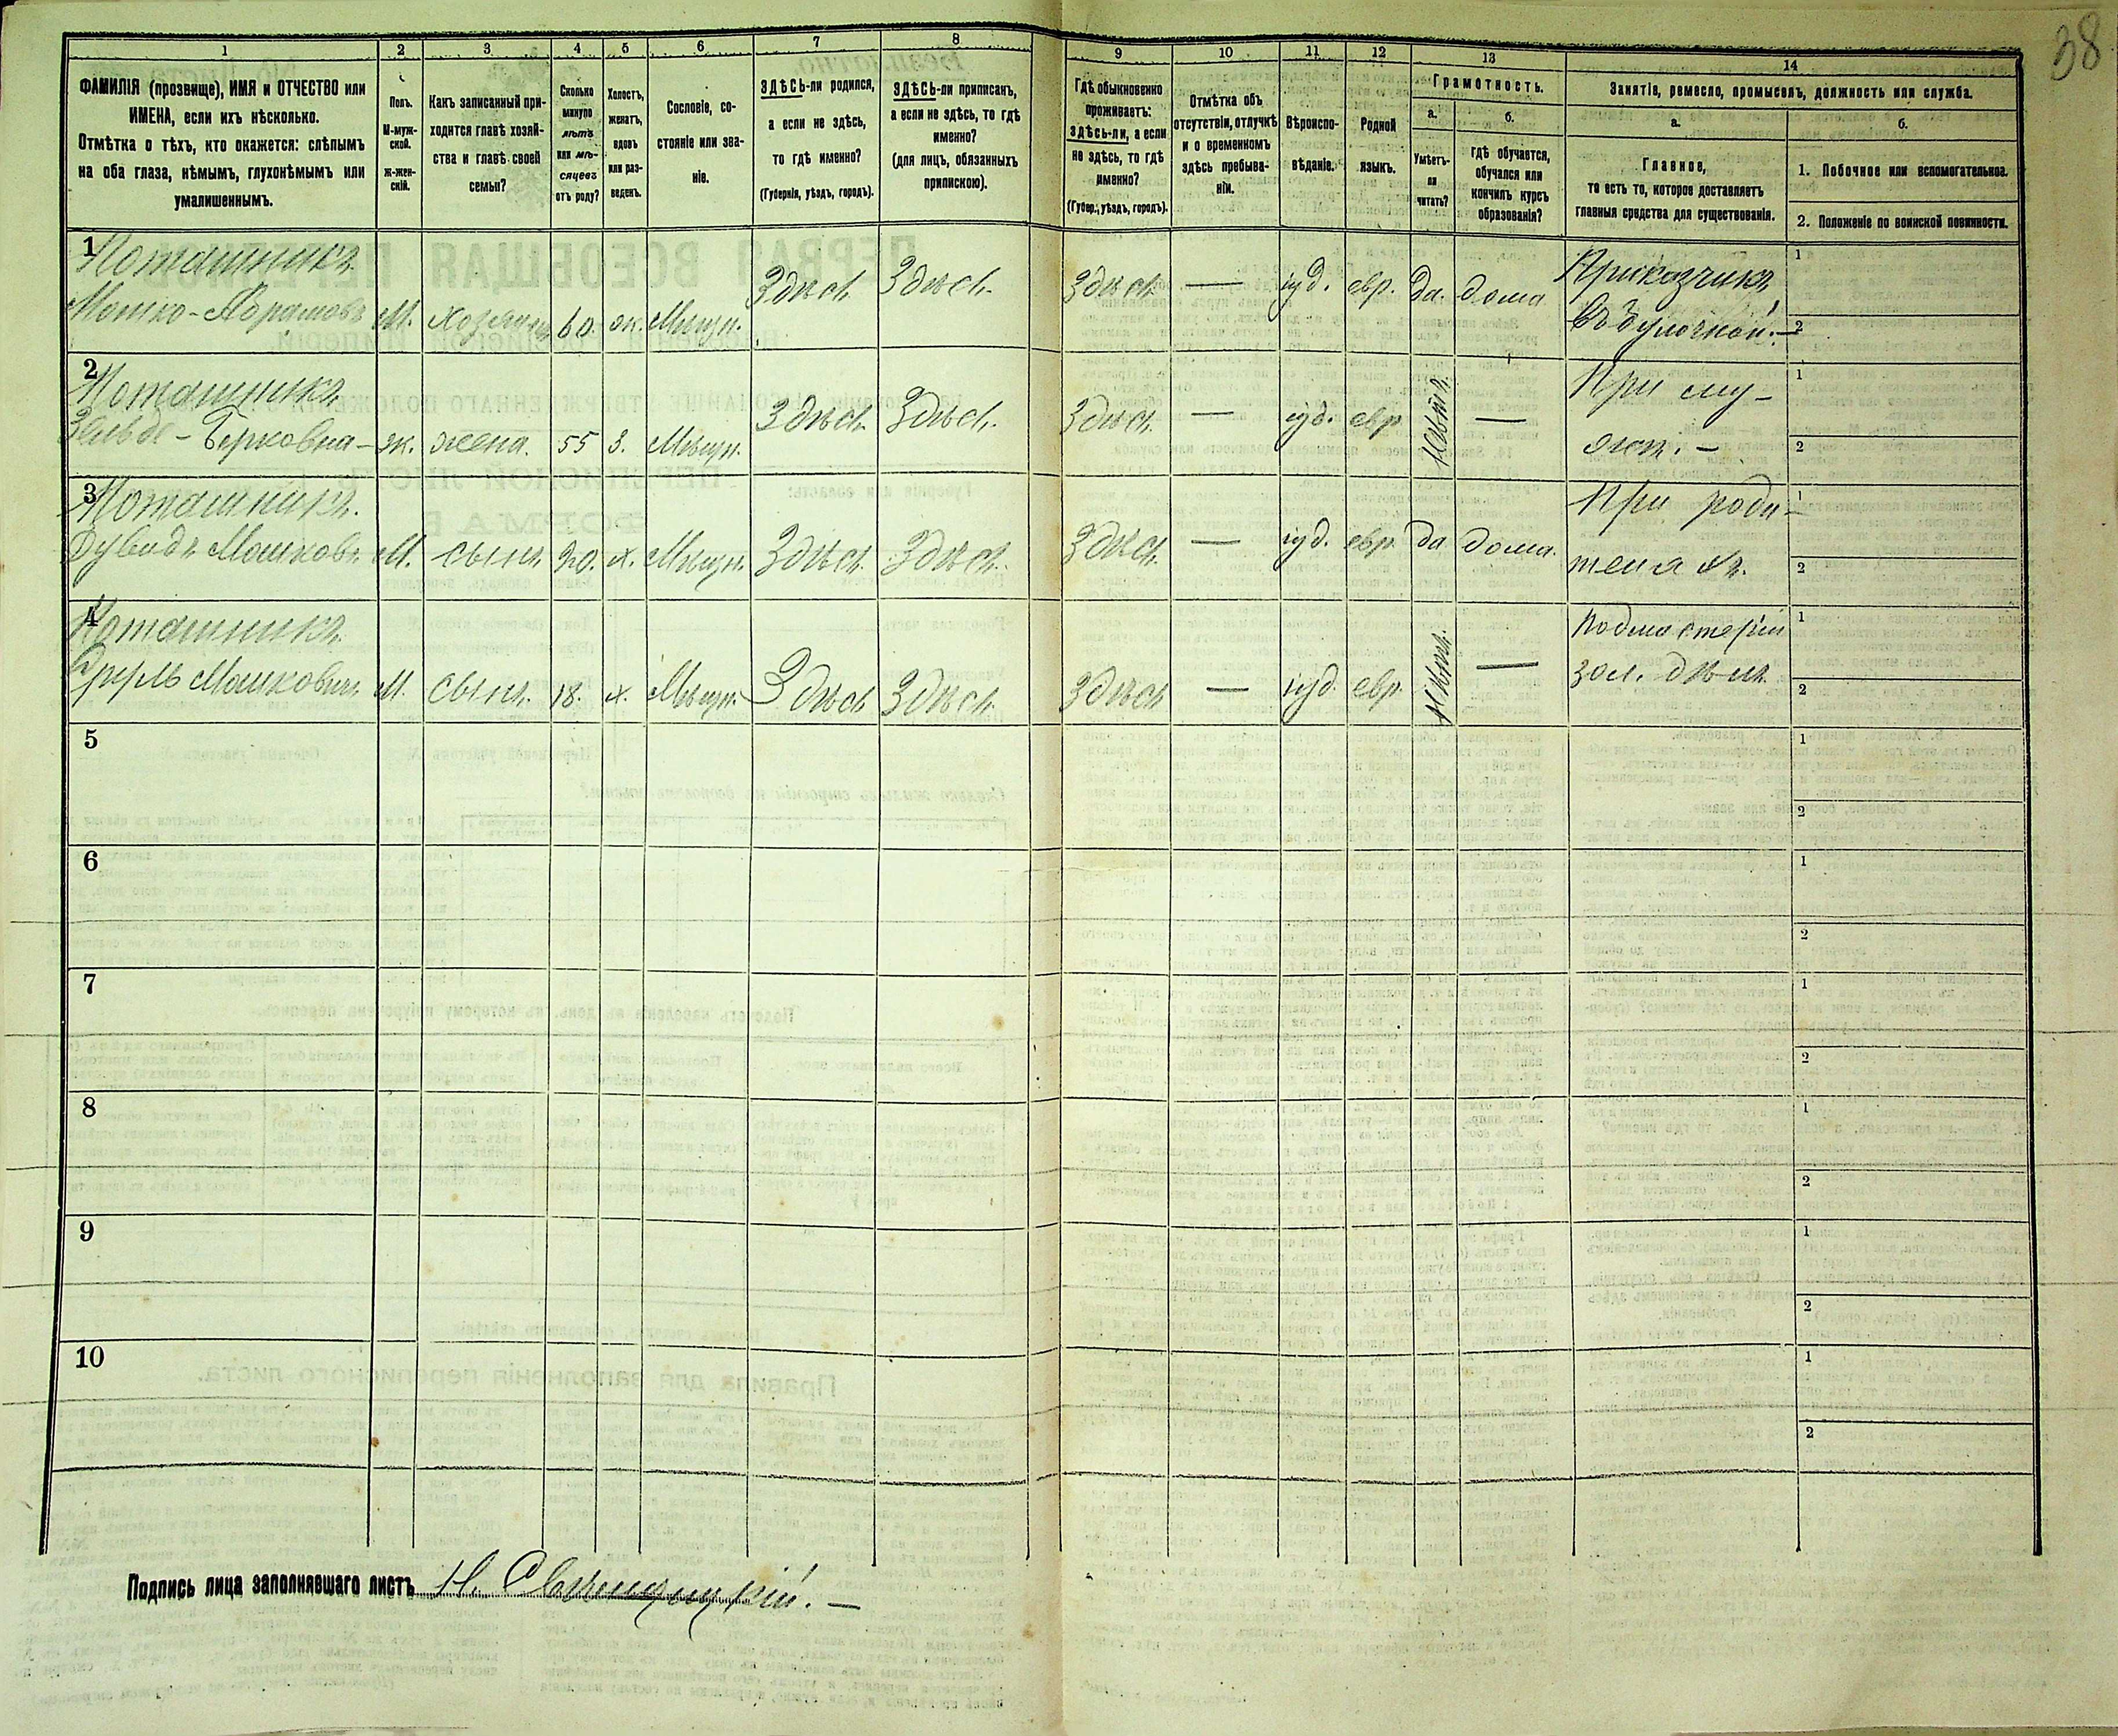 38
1 2 3 4 5 6 7 8 9 10 11 12 13 14
ФАМИЛІЯ (прозвище), ИМЯ и ОТЧЕСТВО или ИМЕНА, если ихъ нѣсколько.
Отмѣтка о тѣхъ, кто окажется: слѣпымъ на оба глаза, нѣмымъ, глухонѣмымъ или умалишеннымъ.
Полъ.
М-мужской.
Ж-женскій.
Какъ записанный приходится главѣ хозяйства и главѣ своей семьи?
Сколько минуло лѣтъ или мѣсяцевъ отъ роду?
Холостъ, женатъ, вдовъ или разведенъ.
Сословіе, состояніе или званіе.
ЗДѢСЬ-ли родился, а если не здѣсь, то гдѣ именно?
(Губернія, уѣздъ, городъ).
ЗДѢСЬ-ли приписанъ, а если не здѣсь, то гдѣ именно?
(для лицъ, обязанныхъ припискою).
Гдѣ обыкновенно проживаетъ: здѣсь-ли, а если не здѣсь, то гдѣ именно?
(Губер., уѣздъ, городъ).
Отмѣтка объ отсутствіи, отлучкѣ и о временномъ здѣсь пребываніи.
Вѣроисповѣданіе.
Родной языкъ.
Грамотность.
а.
Умѣетъ-ли читать?
б.
Гдѣ обучается, обучался или кончилъ курсъ образованія?
Занятіе, ремесло, промыселъ, должность или служба.
а.
Главное,
то есть то, которое доставляетъ главныя средства для существованія.
б.
1. Побочное или вспомогательное.
2. Положеніе по воинской повинности.
1 Поташникъ
Мошко-Абрамовъ М. хозяинъ 60. ж. Мѣщн. Здѣсь Здѣсь Здѣсь — іуд. евр. да. дома Приказчикъ
въ булочной. — 1 2
2 Поташникъ
Берковна ж. жена. 55 З. Мѣщн. Здѣсь Здѣсь Здѣсь — іуд. евр нѣтъ. — При му-
жѣ. — 1 2
3 Поташникъ.
Дувидъ Мошковъ М. сынъ 20. х. Мѣщн. Здѣсь Здѣсь Здѣсь — іуд. евр. да дома. При роди-
теляхъ. 1 2
4 Поташникъ
Сруль Мошковичъ М. сынъ. 18. х. Мѣщн. Здѣсь Здѣсь Здѣсь — іуд. евр. нѣтъ. — Подмастерій
зол. дѣлъ 1 2
5 1 2
6 1 2
7 1 2
8 1 2
9 1 2
10 1 2
Подпись лица заполнявшаго листъ Н.